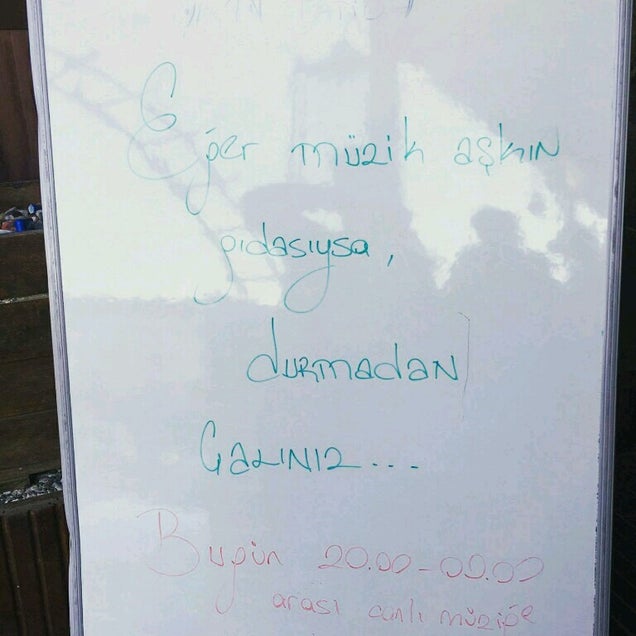 Eğer müzik aşkın
gıdasıysa,
durmadan
Çalınız...
Bugün 20.00-00.00
arası canlı müziğe